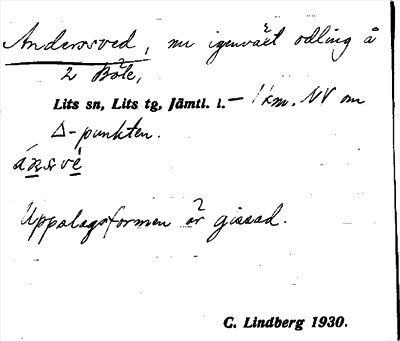 Andersved, nu igenväxt odling å
2 Böle,
Lits sn, Lits tg, Jämtl. l. – 1 km. NV om
Δ-punkten.
Uppslagsformen är gissad.
C. Lindberg 1930.